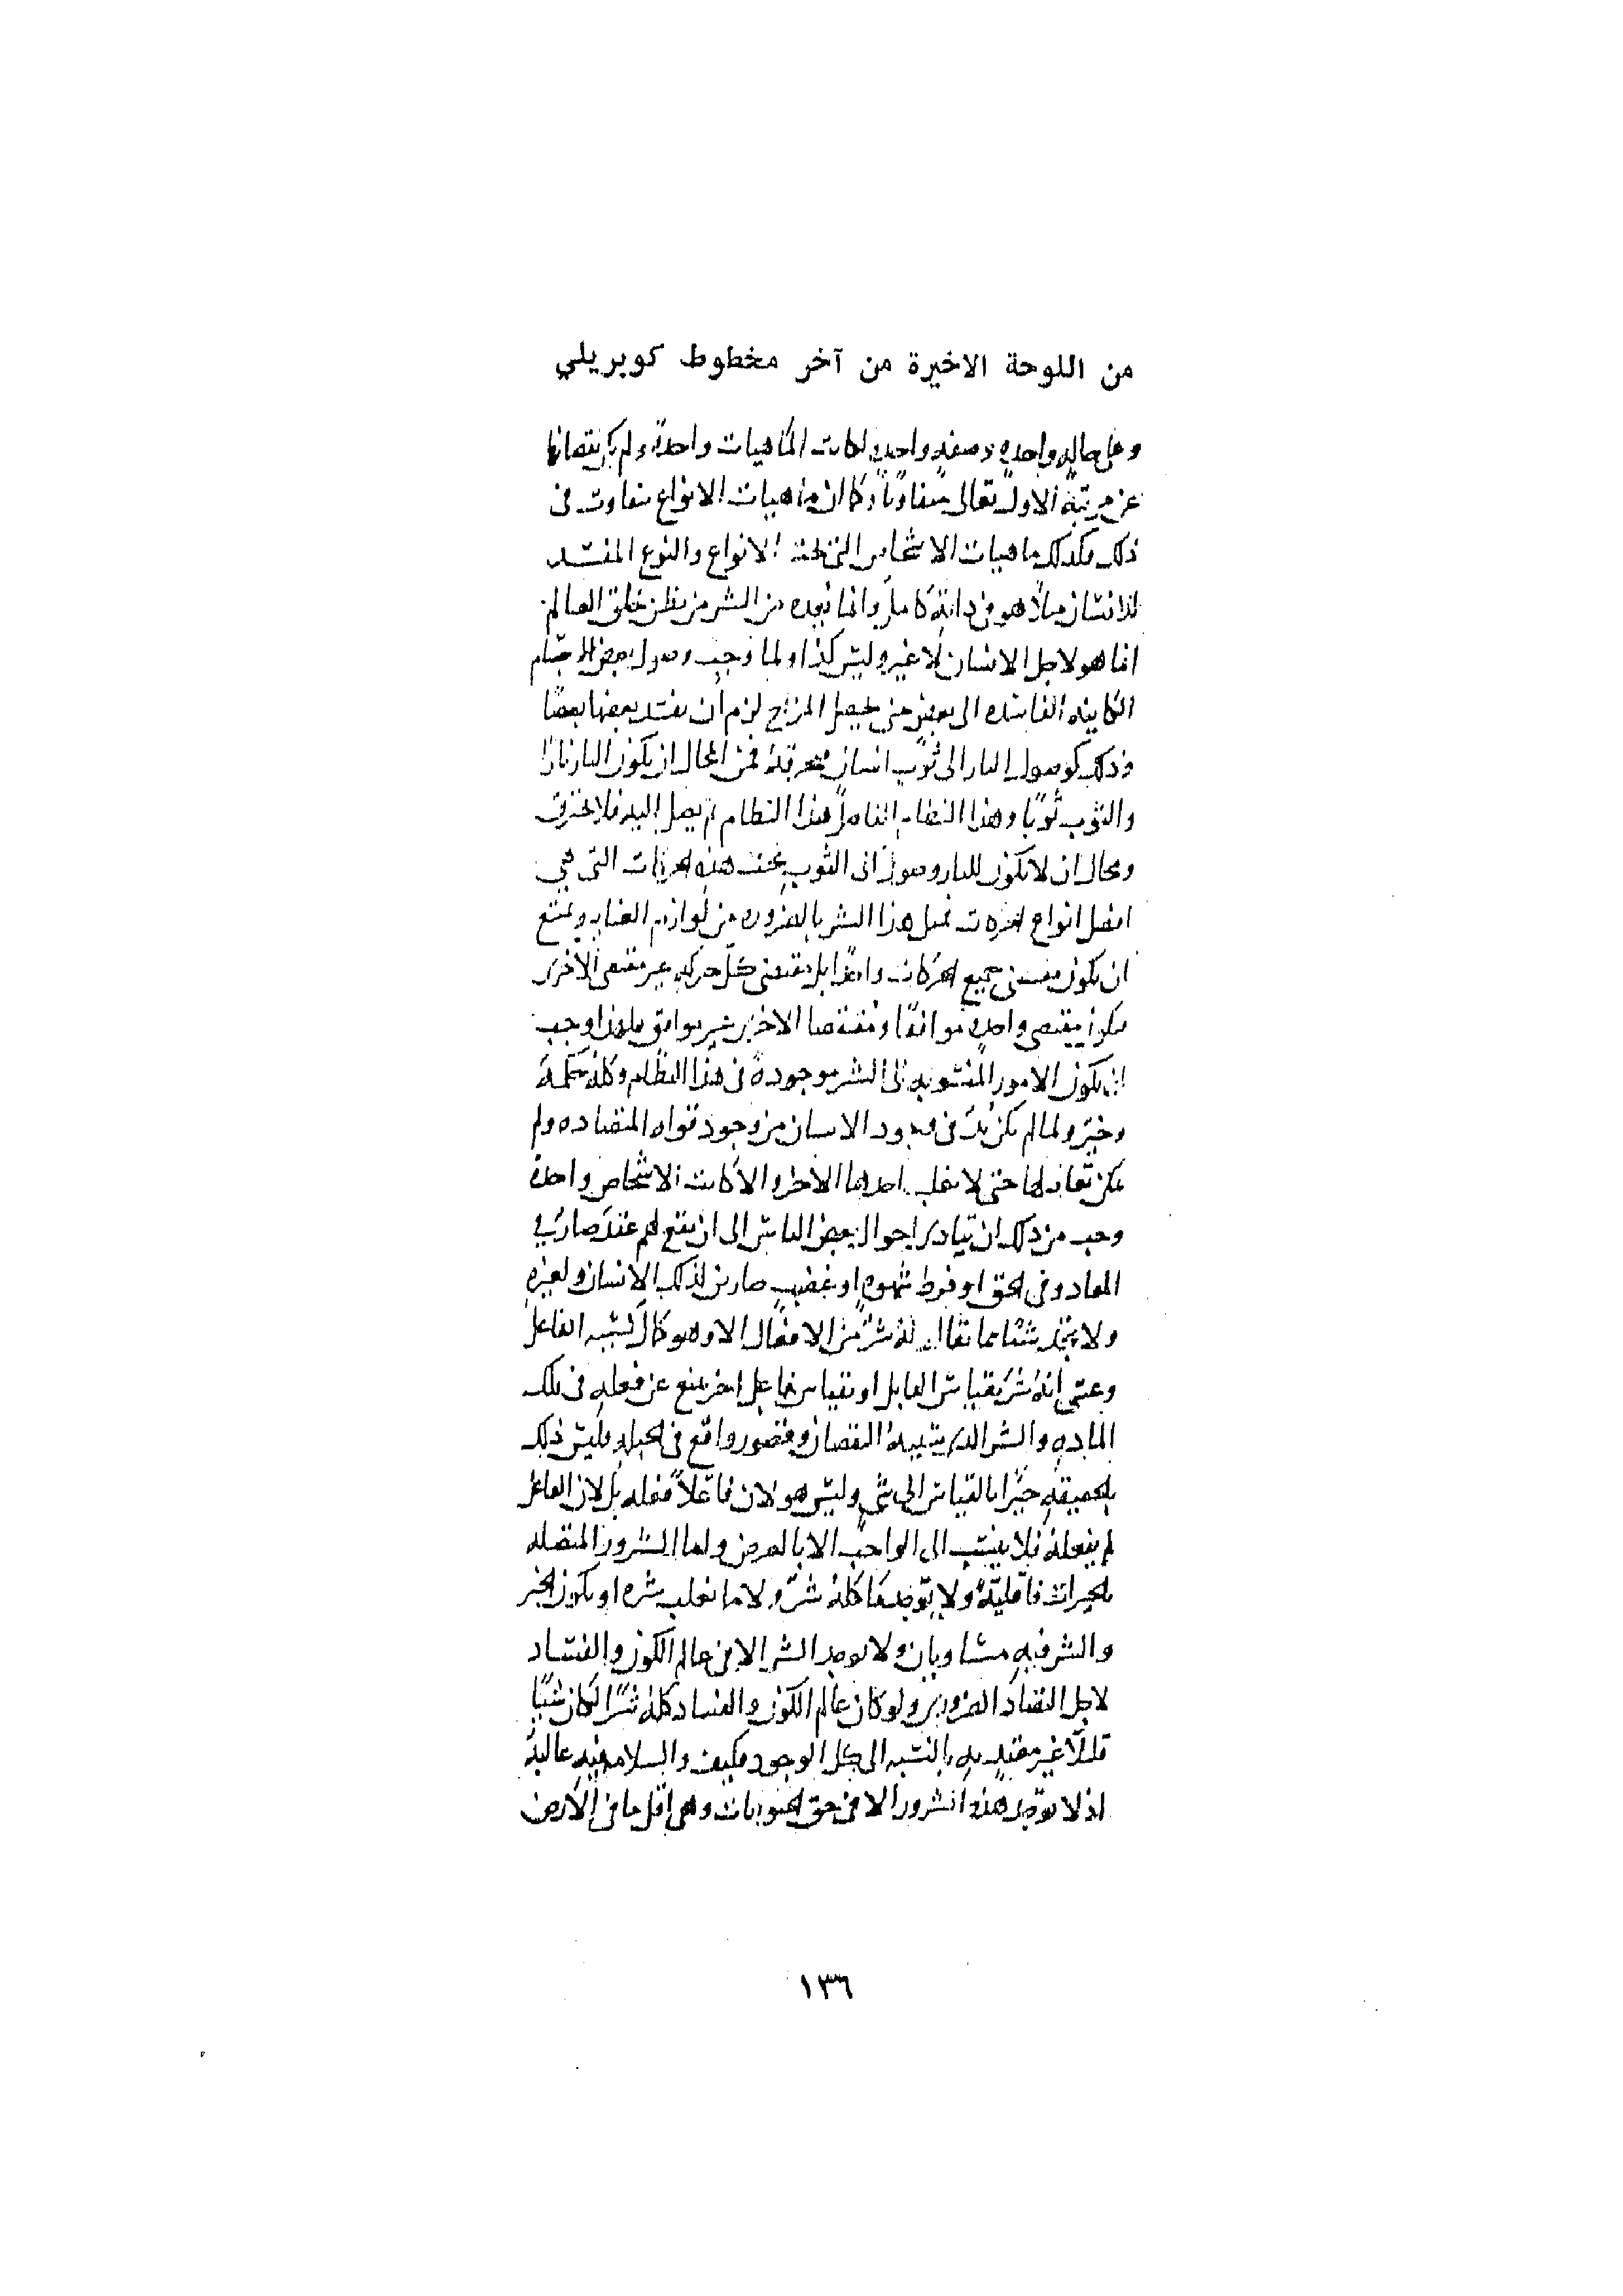 من اللوحة الاخيرة من آخر مخطوط كوبريلي
وعلى حاله واحده وصفه واحده لكانت الماهيات واحدة ولم يكن نقصانها
عن مرتبة الاول تعالى متفاوتاً وكما ان ماهيات الانواع تتفاوت فى
ذلك فكذلك ماهيات الاشخاص التى تحت الانواع والنوع المفسد
للانسان مثلاً هو فى ذاته كامل وانما نعده من الشر من يظن خلق العالم
انما هو لاجل الانسان لا غير وليس كذا ولما وجب وصول بعض الاجسام
الكاينه الفاسده الى بعض حتى يحصل المزاج لزم ان يفسد بعضها بعضا
وذلك كوصول النار الى ثوب انسان فتحرقه فمن المحال ان يكون النار نارا
والثوب ثوبا وهذا النظام هذا النظام ثم يصل اليه فلا يحترق
ومحال ان لا يكون للنار وصول الى الثوب بحسب هذه الحركات التى هي
افضل انواع الحركات فمثل هذا الشر بالضروره من لوازم العنايه ويمتنع
ان يكون مقتضى جميع الحركات واحدا بل مقتضى كل حركه غير مقتضى الاخرى
فيكون مقتضى واحده موافقا ومقتضى الاخرى غير موافق فلهذا وجب
ان يكون الامور المنسوبه الى الشر موجودة فى هذا النظام وكله حكمة
وخير ولما لم يكن بد فى وجود الانسان من وجود قواه المتضاده ولم
يمكن تعادلها حتى لا يغلب احدها الاخر والا كانت الاشخاص واحدة
وجب من ذلك ان تتادى احوال بعض الناس الى ان يقع لهم عقد ضار في
المعاد وفى الحق او فرط شهوه او غضب ضار لذلك الانسان ولغيره
ولا تجد شيئا مما يقال له شر من الافعال الا وهو كمال لسببه الفاعل
وعسى انه شر بقياس القابل او بقياس فاعل اخر يمنع عن فعله فى تلك
الماده والشر الذى سببه النقصان وقصور واقع فى الجبله فليس ذلك
بالحقيقه خيرا بالقياس الى شي وليس هو لان فاعلاً فعله بل لان الفاعل
لم يفعله فلا ينسب الى الواجب الا بالعرض واما الشرور المتصله
بالخيرات فاقليّة ولا يوجد ما كله شرّ ولا ما يغلب شره او يكون الخير
والشر فيه متساويان ولا يوجد الشر الا فى عالم الكون والفساد
لاجل التضاد الضرورى ولو كان عالم الكون والفساد كله شرّا لكان شيئا
قليلاً غير معتد به بالنسبه الى كل الوجود فكيف والسلامه فيه غالبة
اذ لا يوجد هذه الشرور الا فى حق الحيوانات وهى اقل ما فى الارض
١٣٦